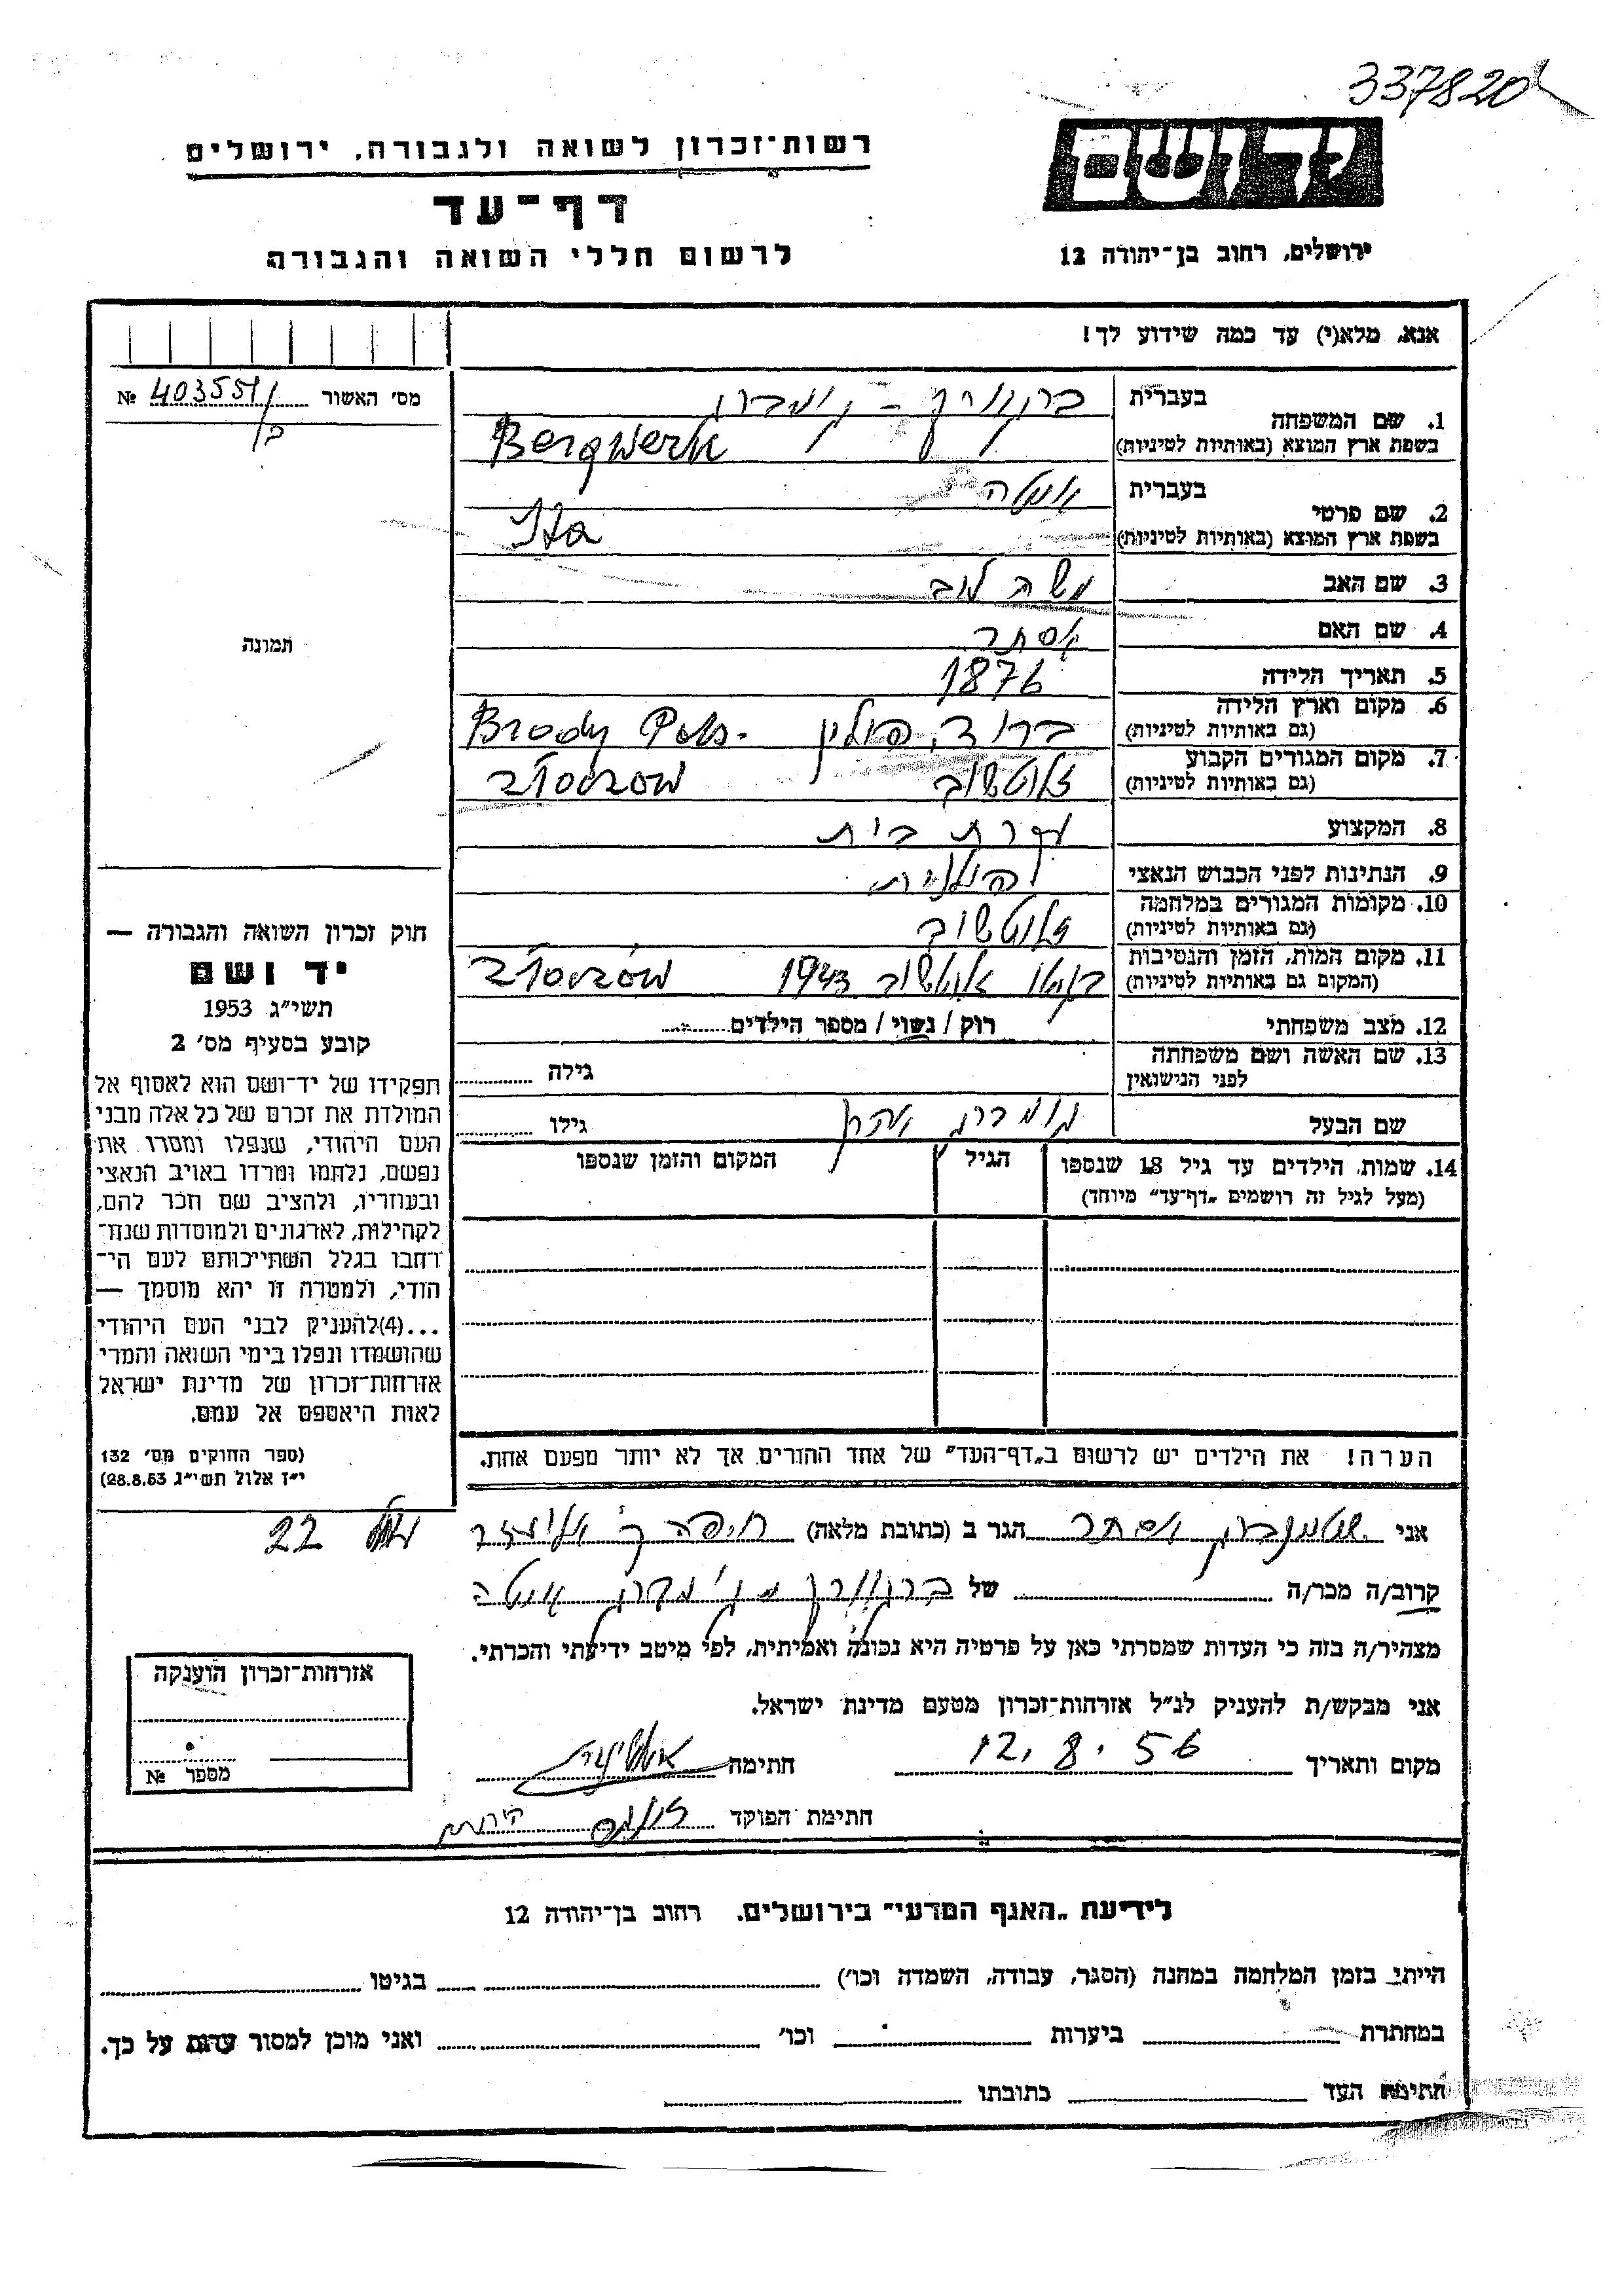 337820
יד ושם
רשות־זכרון לשואה ולגבורה, ירושלים
דף־עד
ירושלים, רחוב בן־יהודה 12
לרשום חללי השואה והגבורה
אנא, מלא(י) עד כמה שידוע לך!
מס' האשור № 403551
1. שם המשפחה
בעברית
בשפת ארץ המוצא (באותיות לטיניות) Bergwerk
2. שם פרטי
בעברית איטה
בשפת ארץ המוצא (באותיות לטיניות) Ita
3. שם האב משה לוב
4. שם האם אסתר
5. תאריך הלידה 1876
6. מקום וארץ הלידה
(גם באותיות לטיניות) ברוד, פולין Brody Pols.
7. מקום המגורים הקבוע
(גם באותיות לטיניות) זלוטשוב
8. המקצוע עקרת בית
9. הנתינות לפני הכבוש הנאצי פולנית
10. מקומות המגורים במלחמה
(גם באותיות לטיניות) זלוטשוב
11. מקום המות, הזמן והנסיבות
(המקום גם באותיות לטיניות) בגטו זלוטשוב 1943
12. מצב משפחתי רוק / נשוי / מספר הילדים
13. שם האשה ושם משפחתה
לפני הנישואין
גילה
שם הבעל
גילו
14. שמות הילדים עד גיל 18 שנספו
(מעל לגיל זה רושמים „דף־עד" מיוחד)
הגיל
המקום והזמן שנספו
הערה! את הילדים יש לרשום ב„דף־העד" של אחד ההורים אך לא יותר מפעם אחת.
תמונה
חוק זכרון השואה והגבורה —
יד ושם
תשי"ג 1953
קובע בסעיף מס' 2
תפקידו של יד־ושם הוא לאסוף אל
המולדת את זכרם של כל אלה מבני
העם היהודי, שנפלו ומסרו את
נפשם, נלחמו ומרדו באויב הנאצי
ובעוזריו, ולהציב שם וזכר להם,
לקהילות, לארגונים ולמוסדות שנח־
רבו בגלל השתייכותם לעם הי־
הודי, ולמטרה זו יהא מוסמך —
...(4)להעניק לבני העם היהודי
שהושמדו ונפלו בימי השואה והמרי
אזרחות־זכרון של מדינת ישראל
לאות היאספם אל עמם.
(ספר החוקים מס' 132
י"ז אלול תשי"ג 28.8.53)
אני אסתר הגר ב (כתובת מלאה) חיפה 22
קרוב/ה מכר/ה של איטה
מצהיר/ה בזה כי העדות שמסרתי כאן על פרטיה היא נכונה ואמיתית, לפי מיטב ידיעתי והכרתי.
אני מבקש/ת להעניק לנ"ל אזרחות־זכרון מטעם מדינת ישראל.
מקום ותאריך 12.8.56 חתימה
חתימת הפוקד
אזרחות־זכרון הוענקה
מספר №
לידיעת „האגף המדעי" בירושלים. רחוב בן־יהודה 12
הייתי בזמן המלחמה במחנה (הסגר, עבודה, השמדה וכו') בגיטו
במחתרת ביערות וכו' ואני מוכן למסור עדות על כך.
חתימת העד כתובתו